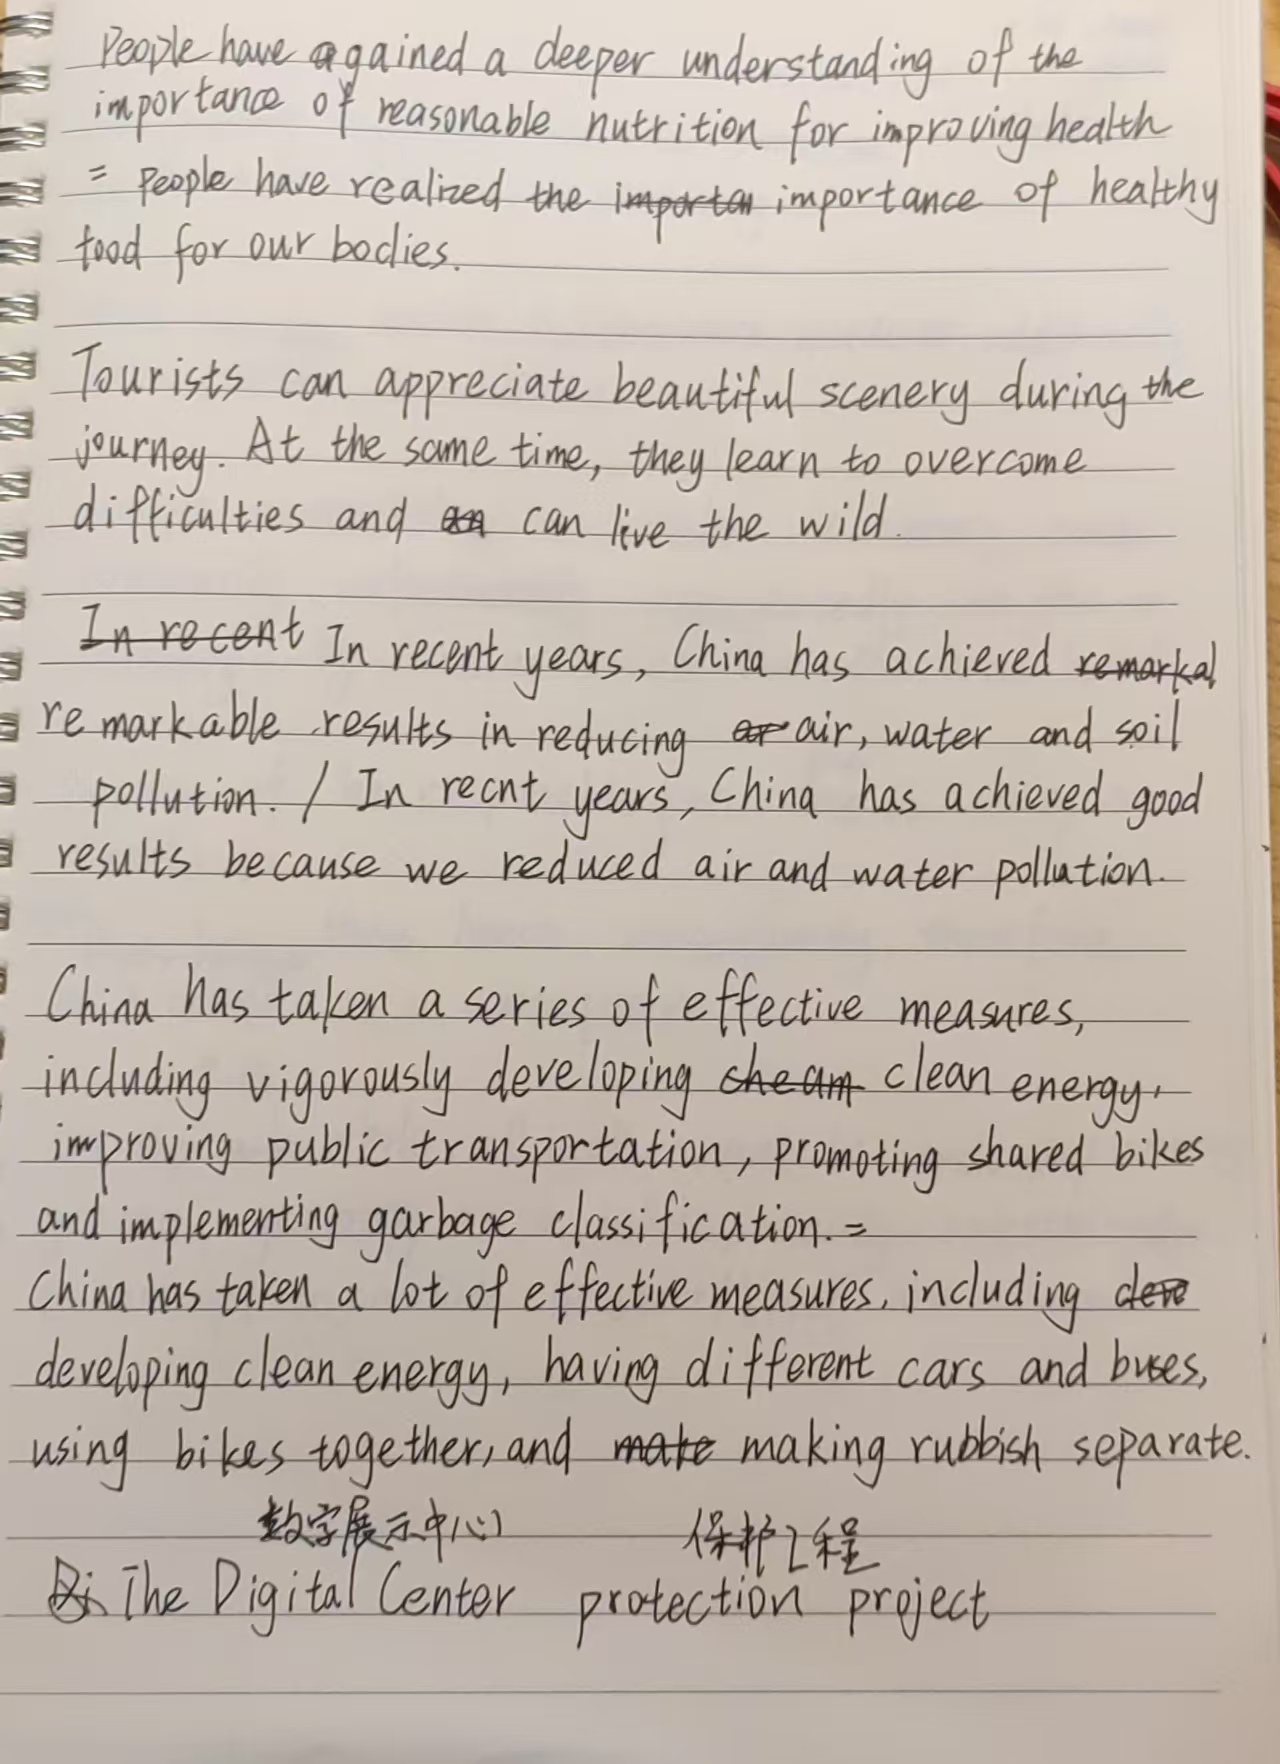 People have gained a deeper understanding of the
importance of reasonable nutrition for improving health
= People have realized the importance of healthy
food for our bodies.
Tourists can appreciate beautiful scenery during the
journey. At the same time, they learn to overcome
difficulties and can live the wild.
In recent years, China has achieved
remarkable results in reducing air, water and soil
pollution. / In recnt years, China has achieved good
results because we reduced air and water pollution.
China has taken a series of effective measures,
including vigorously developing clean energy,
improving public transportation, promoting shared bikes
and implementing garbage classification. =
China has taken a lot of effective measures, including
developing clean energy, having different cars and buses,
using bikes together, and making rubbish separate.
数字展示中心 保护工程
The Digital Center protection project